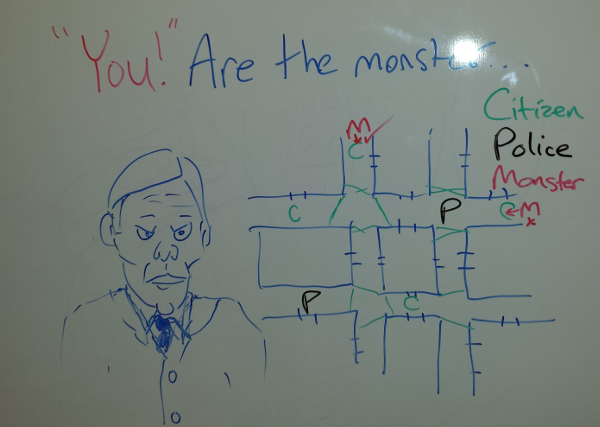 "You!" Are the monster...
Citizen
Police
Monster
M
C
C
P
C M
P
C